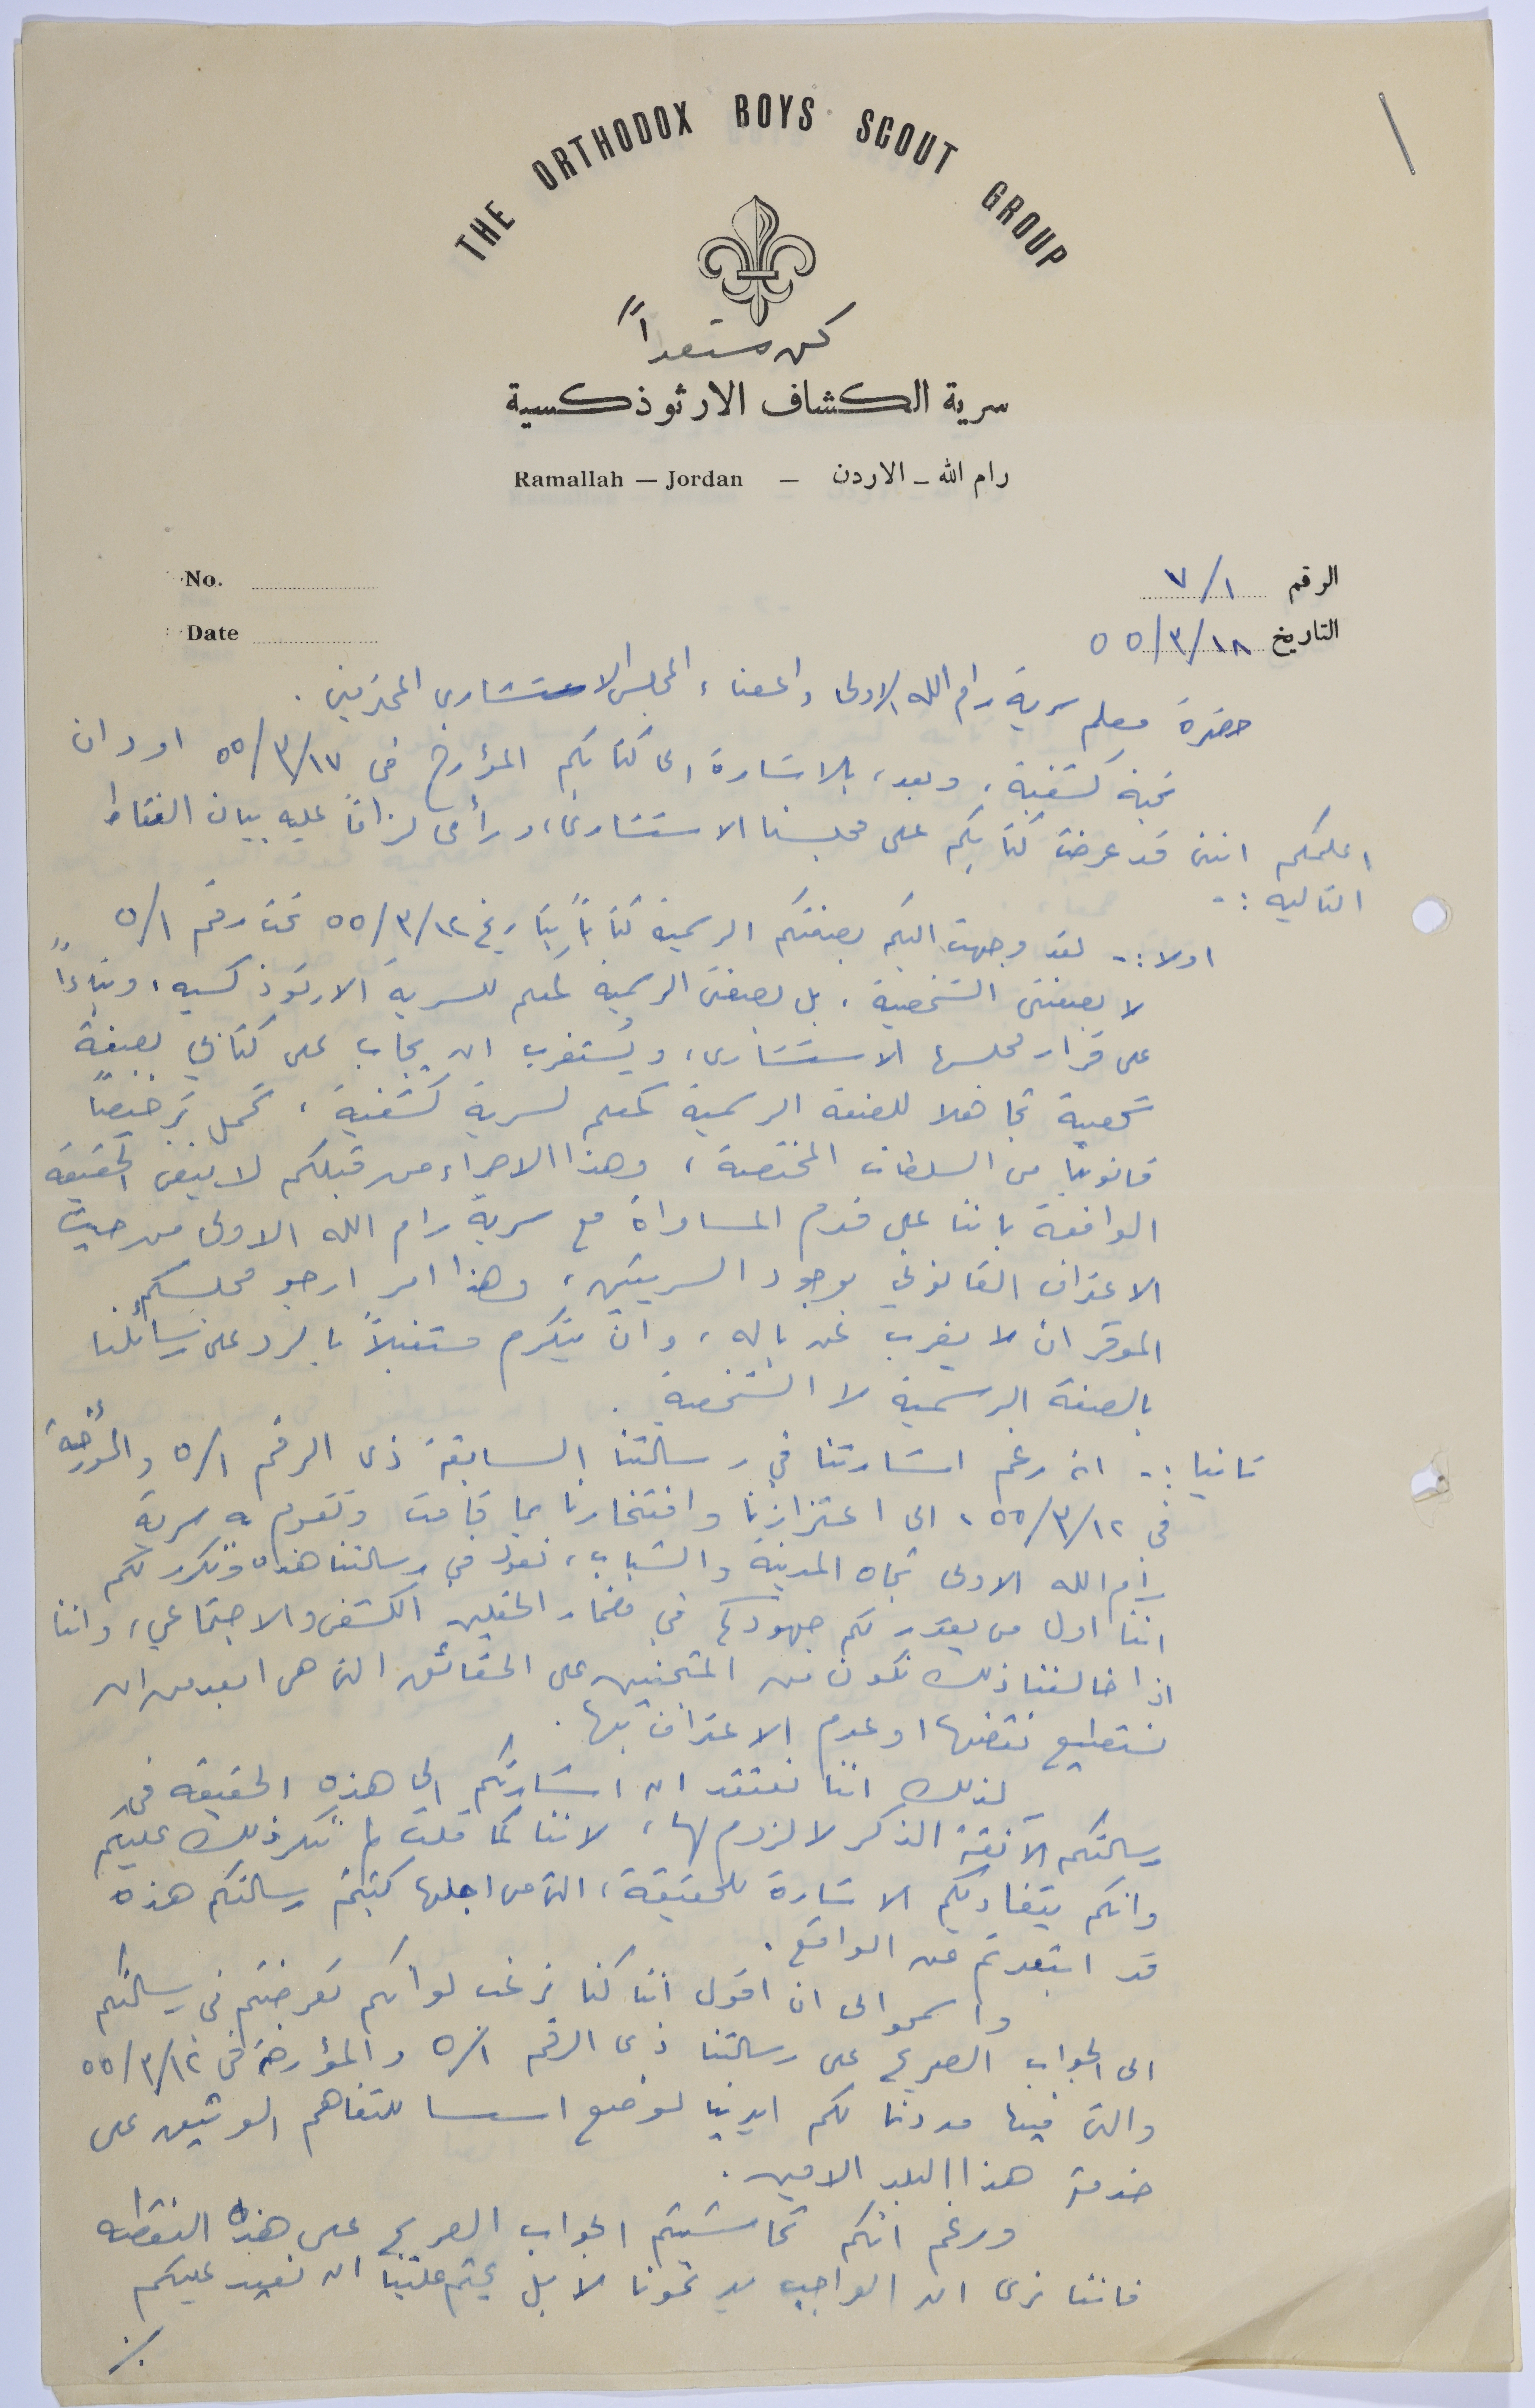 THE ORTHODOX BOYS SCOUT GROUP
كن مستعداً
سرية الكشاف الارثوذكسية
Ramallah — Jordan — رام الله ـ الاردن
No. الرقم ٧/١
Date التاريخ ٥٥/٣/١٨
حضرة معلم سرية رام الله الاولى واعضاء المجلس الاستشاري المحترمين .
تحية كشفية ، وبعد ، بالاشارة الى كتابكم المؤرخ في ٥٥/٣/١٧ اود ان
اعلمكم انني قد عرضت كتابكم على مجلسنا الاستشاري ، ورأى لزاماً عليه بيان النقاط
التاليه :-
اولا :- لقد وجهت اليكم بصفتكم الرسمية كتاباً بتاريخ ٥٥/٣/١٢ تحت رقم ٥/١
لا بصفتي الشخصية ، بل بصفتي الرسمية كمعلم للسرية الارثوذكسيه ، وبناءاً
على قرار مجلسها الاستشاري ، ويُستغرب ان يجاب على كتابي بصفة
شخصية تجاهلا للصفة الرسمية كمعلم لسرية كشفية ، تحمل ترخيصاً
قانونياً من السلطات المختصة ، وهذا الاجراء من قبلكم لا ينفي الحقيقة
الواقعة باننا على قدم المساواة مع سرية رام الله الاولى من حيث
الاعتراف القانوني بوجود السريتين ، وهذا امر ارجو مجلسكم
الموقر ان لا يغرب عن باله ، وان يتكرم مستقبلاً بالرد على رسائلنا
بالصفة الرسمية لا الشخصية .
ثانيا :- انه رغم اشارتنا في رسالتنا السابقة ذي الرقم ٥/١ والمؤرخة
في ٥٥/٣/١٢ ، الى اعتزازنا وافتخارنا بما قامت وتقوم به سرية
رام الله الاولى تجاه المدينة والشباب ، نعود في رسالتنا هذه ونكرر لكم
اننا اول من يقدر لكم جهودكم في مضمار الحقلين الكشفي والاجتماعي ، واننا
اذا خالفنا ذلك نكون من المتجنين على الحقائق التي هي ابعد من ان
نستطيع نقضها او عدم الاعتراف بها .
لذلك اننا نعتقد ان اشارتكم الى هذه الحقيقه في
رسالتكم الآنفة الذكر لا لزوم لها ، لاننا كما قلت لم ننكر ذلك عليكم
وانكم بتفاديكم الاشارة للحقيقة ، التي من اجلها كتبتم رسالتكم هذه
قد ابتعدتم عن الواقع .
واسمحوا لى ان اقول اننا كنا نرغب لو انكم تعرضتم في رسالتكم
الى الجواب الصريح على رسالتنا ذي الرقم ٥/١ والمؤرخة في ٥٥/٣/١٢
والتي فيها مددنا لكم ايدينا لوضع اسسا للتفاهم الوثيق على
خدمة هذا البلد الامين .
ورغم انكم تحاشيتم الجواب الصريح على هذه النقطه
فاننا نرى ان الواجب يدعونا لا بل يحتم علينا ان نعيد عليكم
./.